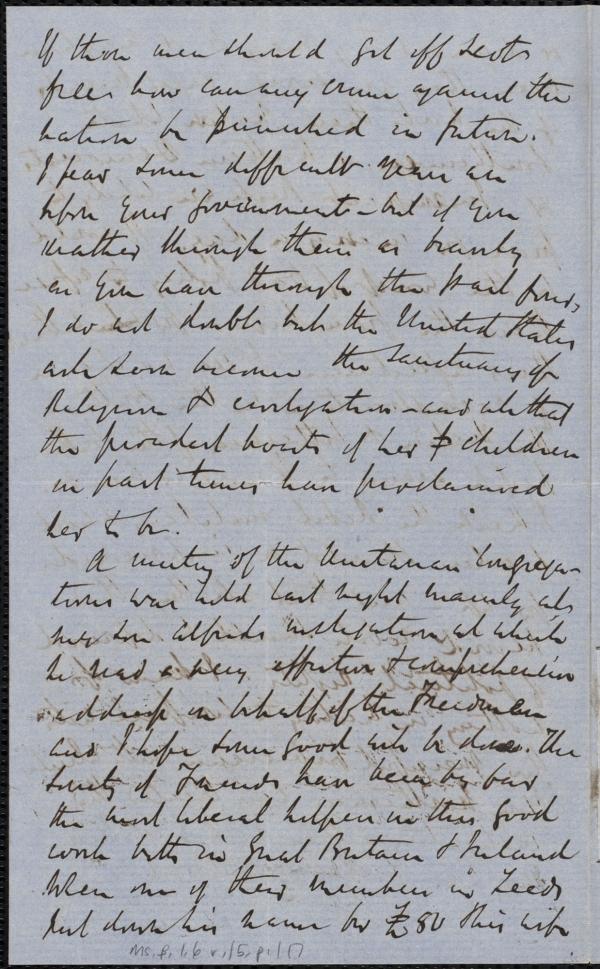 If those men should get off scot
free how can any crime against the
nation be punished in future.
I fear some difficult years are
before your Government - but if you
weather through them as bravely
as you have through the past four,
I do not doubt but the United States
will soon become the sanctuary of
Religion & civilization - and all that
the proudest boasts of her children
in past times have proclaimed
her to be.
A meeting of the Unitarian Congrega-
tions was held last night mainly at
my son Alfred's instigation at which
he read a very effective & comprehensive
address on behalf of the Freedmen
and I hope some good will be done. The
Society of Friends have been by far
the most liberal helpers in this good
work both in Great Britain & Ireland
When one of their members in Leeds
put down his name for £80 his wife
Ms. B. 1.6 v.15, p. 1/17